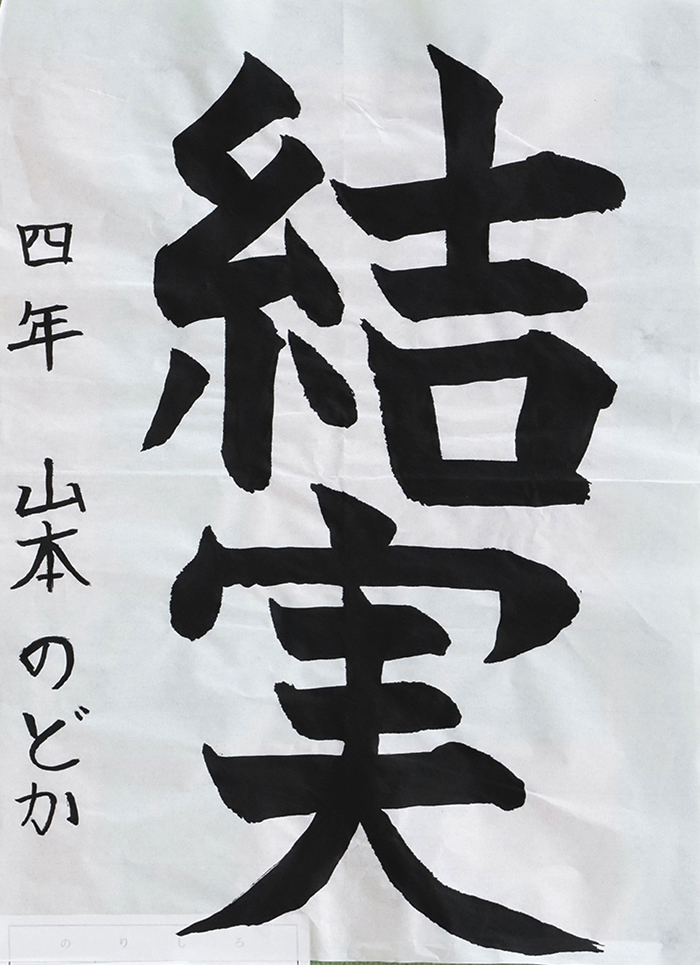 結実
四年 山本のどか
のりしろ